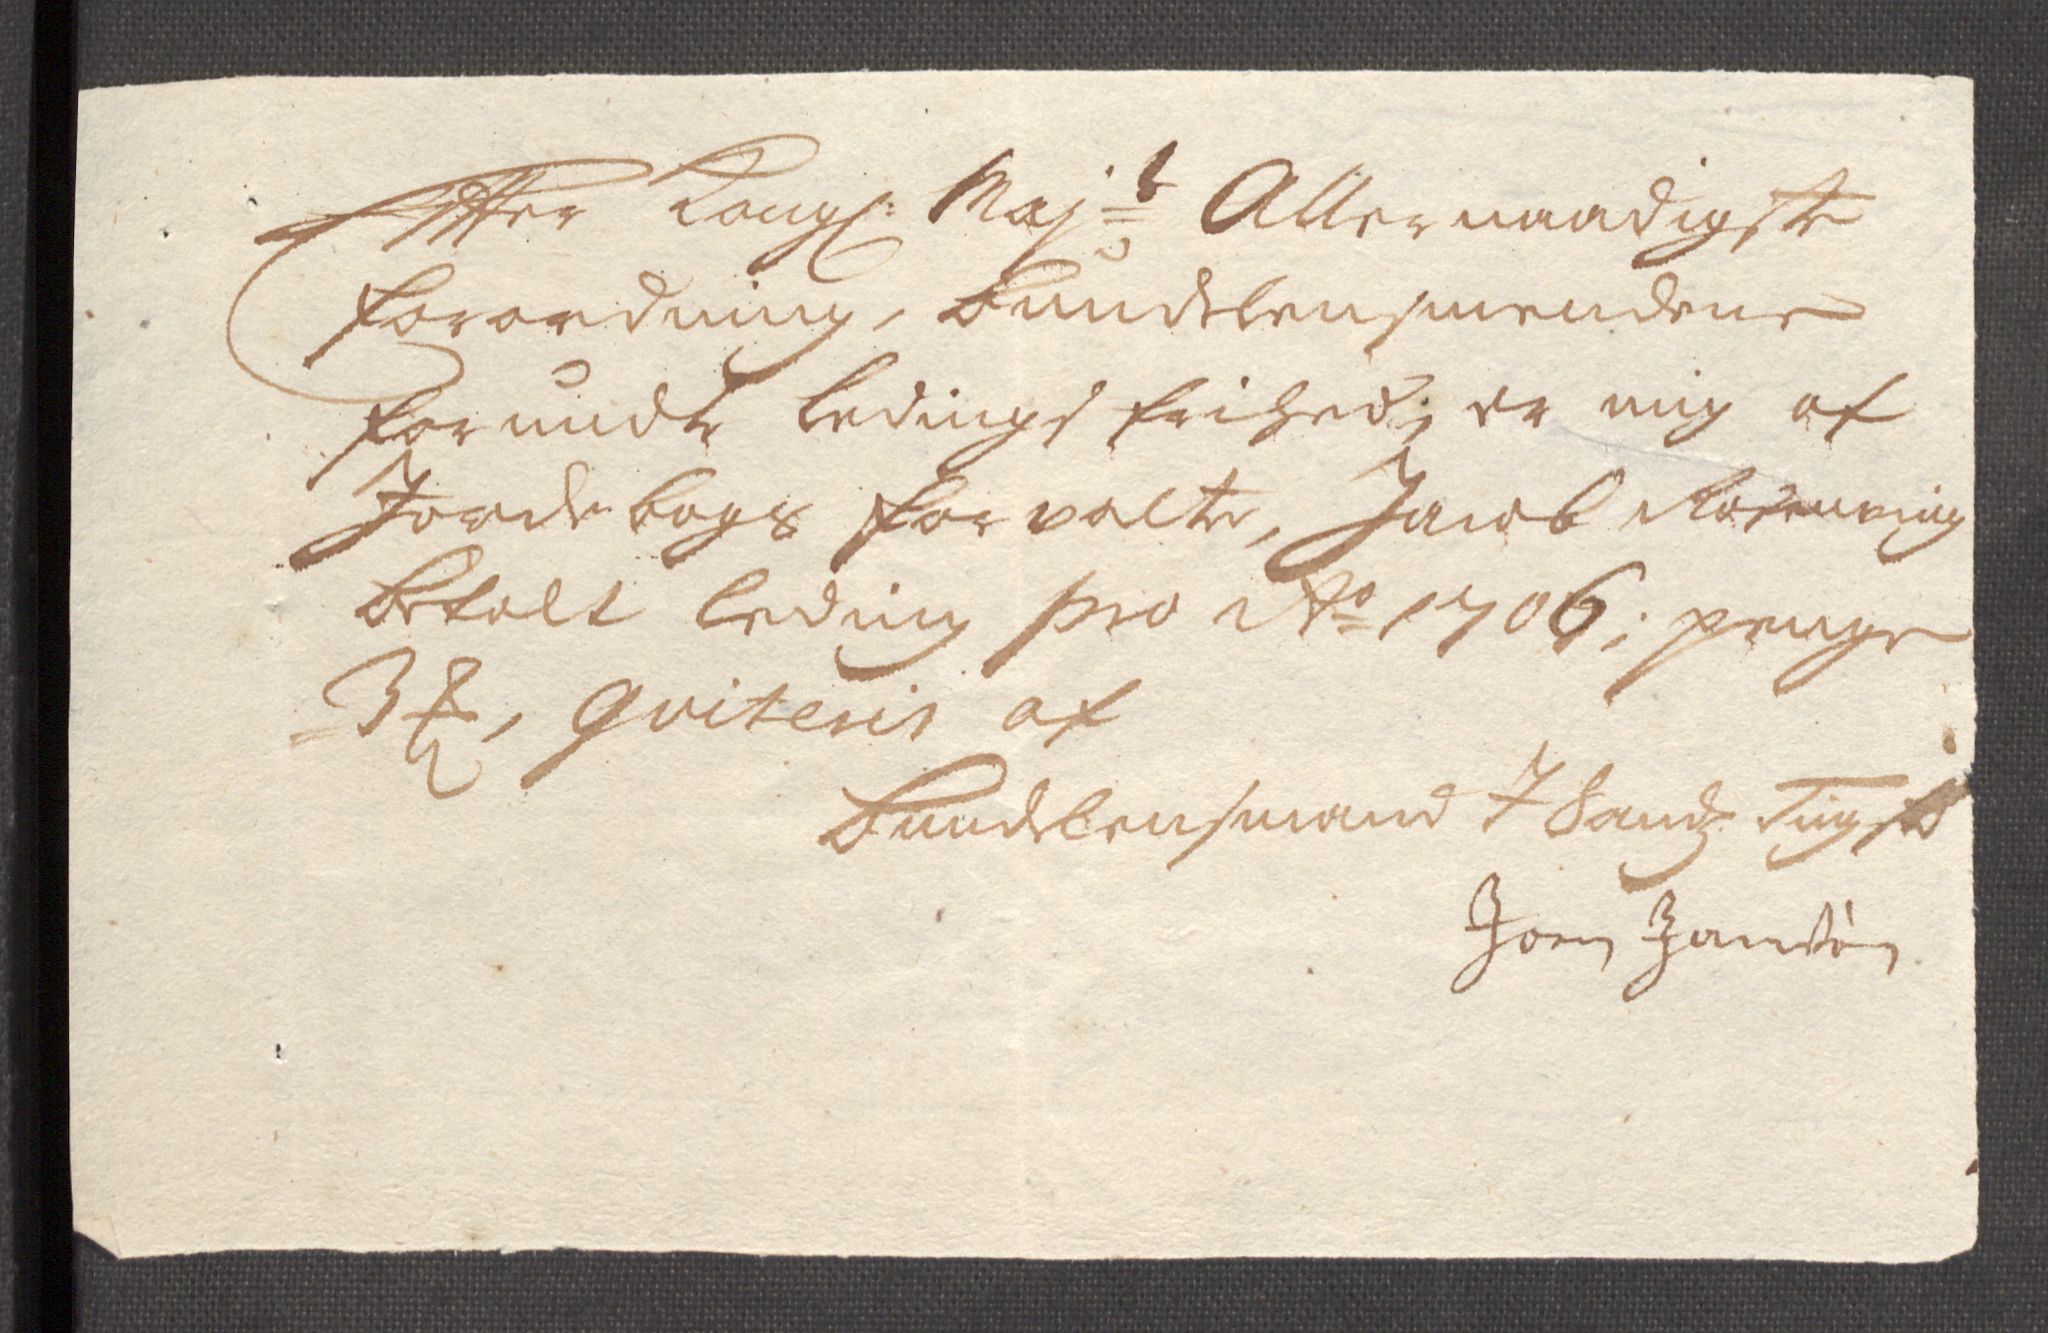 Effter Kongl: Maj:ts Allernaadigste
forordning, bundelensmendene
forundte ledings frihed, er mig af
Jordebogs forvalter, Jacob Rosenving
betalt leding pro Ao 1706; penge
=3 , qviteris af
bundelensmand i Sandz Tingst
Joen Jansøn